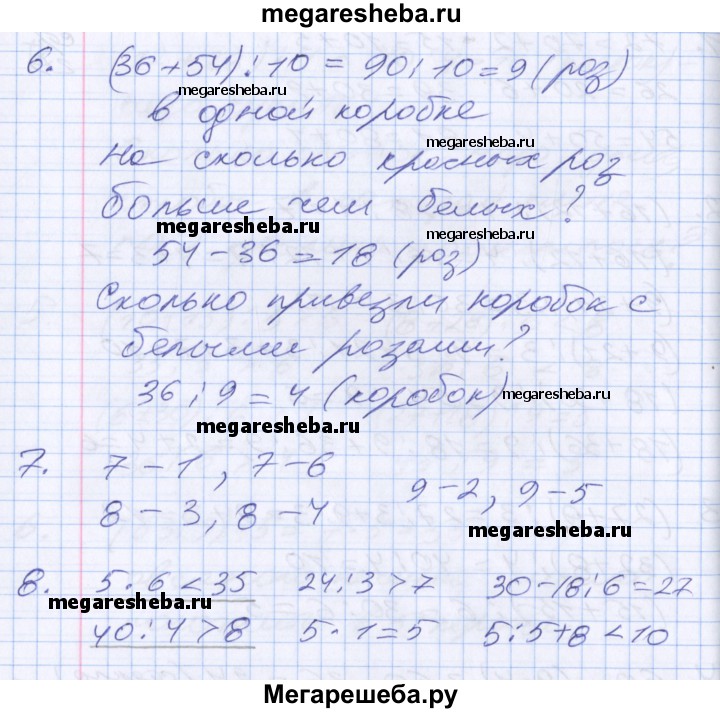 megaresheba.ru
6. (36+54):10 = 90:10 = 9 (роз)
megaresheba.ru
в одной коробке
megaresheba.ru
На сколько красных роз
больше чем белых?
megaresheba.ru
megaresheba.ru
54 - 36 = 18 (роз)
Сколько привезли коробок с
белыми розами?
36 : 9 = 4 (коробок)
megaresheba.ru
megaresheba.ru
7. 7 - 1, 7 - 6
9 - 2, 9 - 5
8 - 3, 8 - 4
megaresheba.ru
8. 5 · 6 < 35 24 : 3 > 7 30 - 18 : 6 = 27
megaresheba.ru
40 : 4 > 8 5 · 1 = 5 5 : 5 + 8 < 10
Мегарешеба.ру